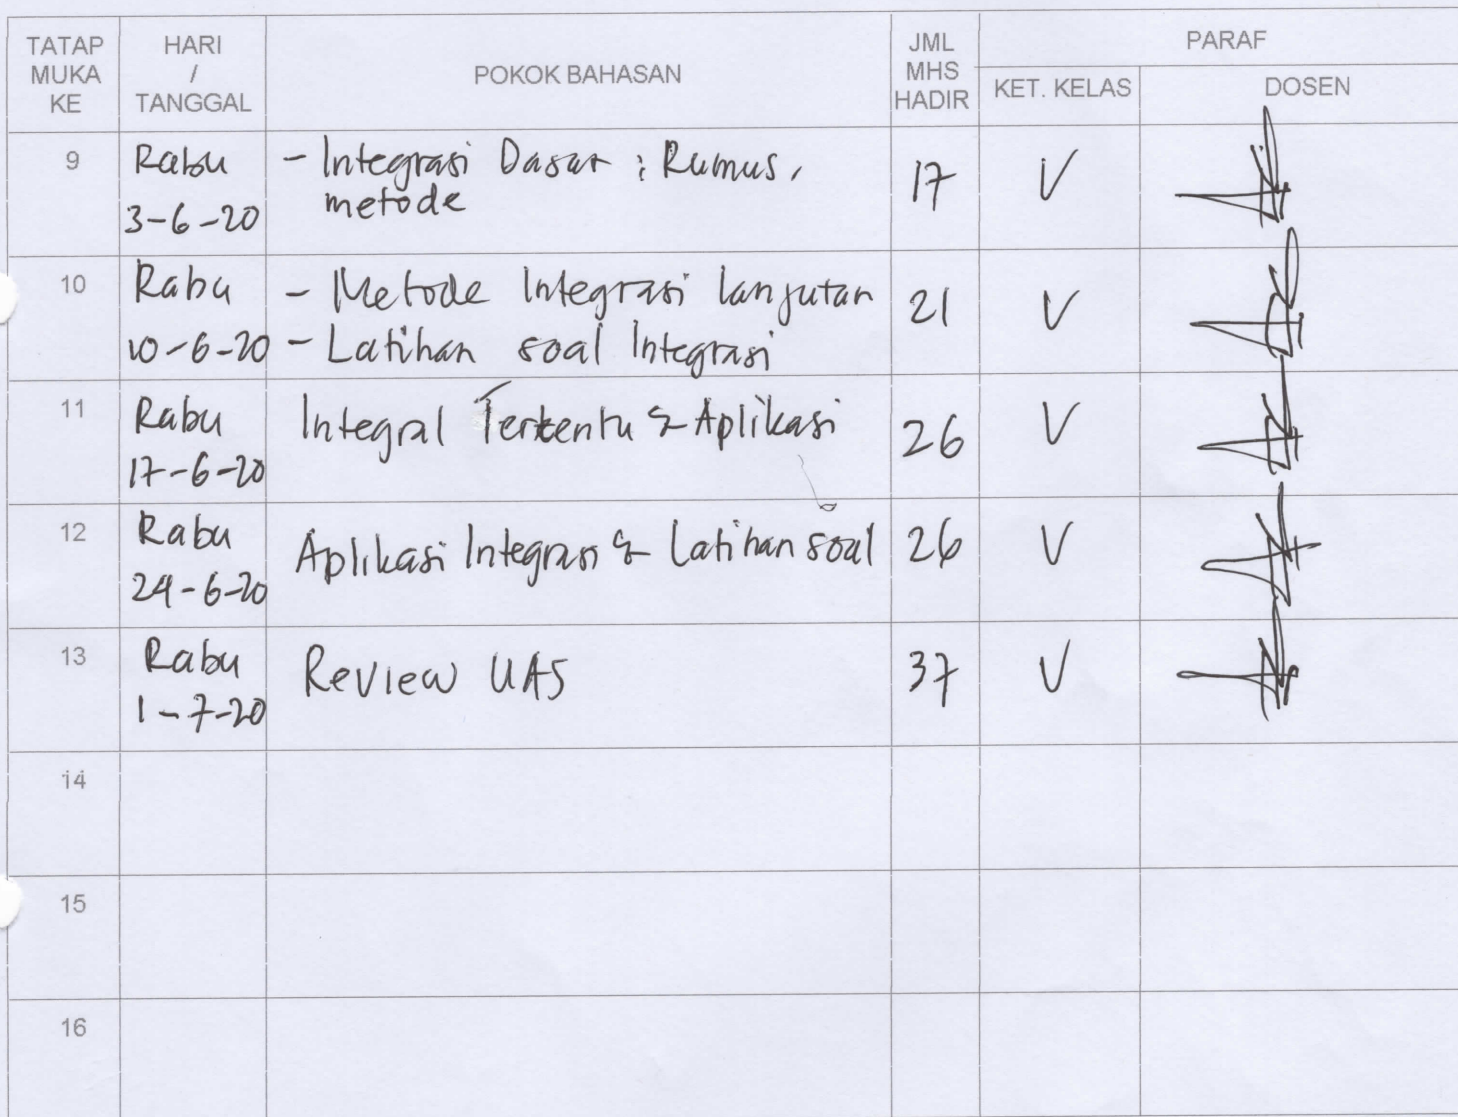 TATAP MUKA KE
HARI / TANGGAL
POKOK BAHASAN
JML MHS HADIR
PARAF
KET. KELAS
DOSEN
9
Rabu
3-6-20
- Integrasi Dasar : Rumus,
metode
17
V
10
Rabu
10-6-20
- Metode Integrasi lanjutan
- Latihan soal Integrasi
21
V
11
Rabu
17-6-20
Integral Tertentu & Aplikasi
26
V
12
Rabu
24-6-20
Aplikasi Integrasi & Latihan soal
26
V
13
Rabu
1-7-20
Review UAS
37
V
14
15
16